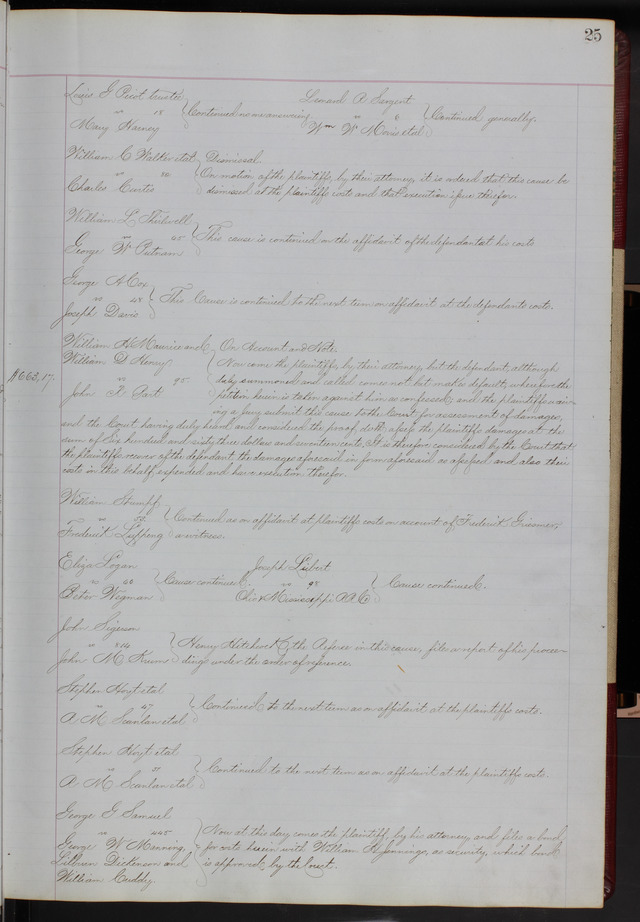 25
Louis G Picot trustee
vs 18 Continued no one answering
Mary Karney
Leonard A Sargent
vs 6 Continued generally.
Wm W Moris etal
William C Walker etal Dismissal
vs 20 On motion of the plaintiffs, by their attorney, it is ordered that this cause be
Charles Curtis dismissed at the plaintiffs costs and that execution issue therefor.
William L Thirlwell
vs 45 This cause is continued on the affidavit of the defendant at his costs
George W Putnam
George A Cox
vs 48 This Cause is continued to the next term on affidavit at the defendants costs.
Joseph Davis
William H Maurice and On Account and Note.
William D Henry, Now come the plaintiffs, by their attorney, but the defendant, although
$663,17. vs 95 duly summoned and called comes not but makes default; wherefore the
John F. Part petition herein is taken against him as confessed; and the plaintiffs waiv-
ing a jury submit this cause to the Court for assessment of damages,
and the Court having duly heard and considered the proof, doth assess the plaintiffs damages at the
sum of Six hundred and sixty three dollars and seventeen cents, It is therefore considered by the Court that
the plaintiffs recover of the defendant the damages aforesaid in form aforesaid as assessed and also their
costs in this behalf expended and have execution therefor.
William Stumpf
vs Continued as on affidavit at plaintiffs costs on account of Frederick
Frederick a witness.
Eliza Logan
vs 60 Cause continued.
Peter Wegman
Joseph Liebert
vs 98 Cause continued.
Ohio & Mississippi RR Co
John Sigerson
vs Henry Hitchcock, the Referee in this cause, files a report of his procee-
John M Krum dings under the order of reference.
Stephen Hoyt etal
vs 47 Continued to the next term as on affidavit at the plaintiffs costs.
A M Scanlan etal
Stephen Hoyt etal
vs 51 Continued to the next term as on affidavit at the plaintiffs costs.
A M Scanlan etal
George G Samuel
vs 445 Now at this day comes the plaintiff, by his attorney, and files a bond
George W Manning, for costs herein with William H Jennings, as security, which bond
Lilburn Dickerson and is approved by the Court.
William Cuddy.